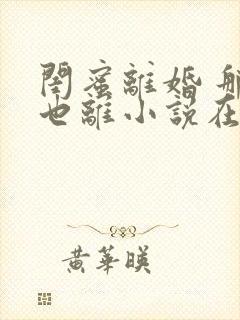 閨蜜離婚
也離小說在
黃華暎